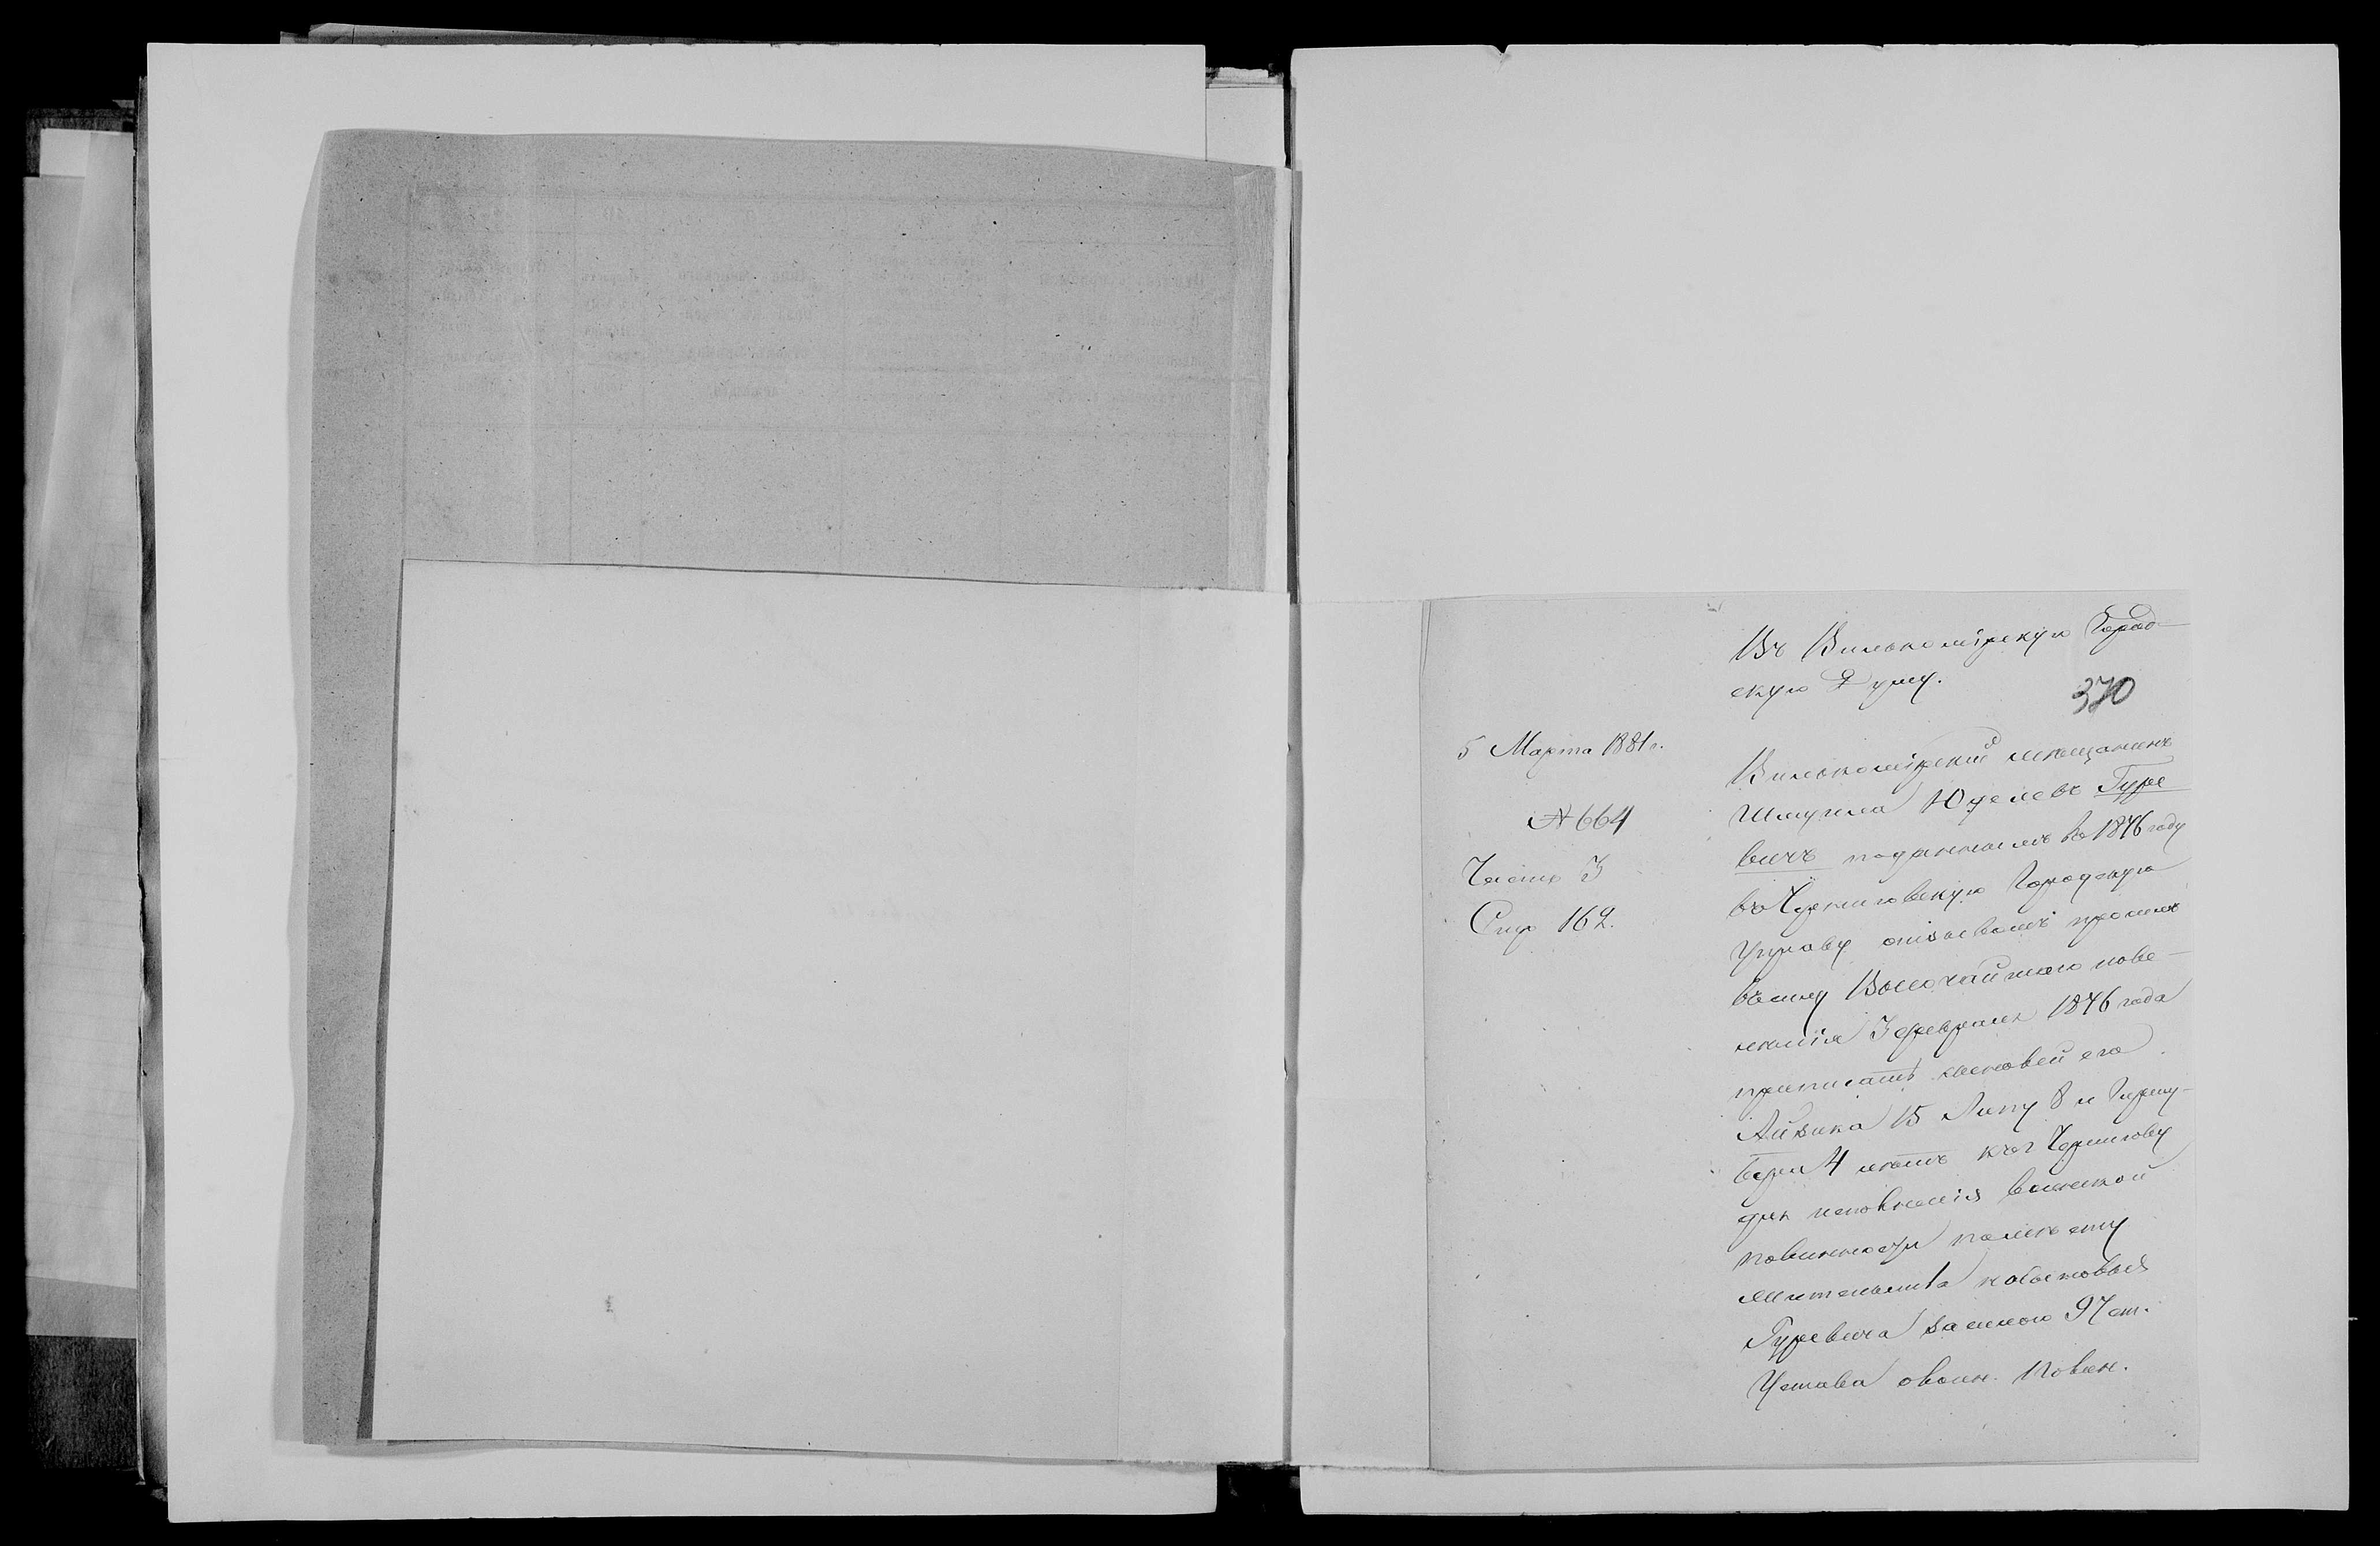 Въ Вилькомірскую Город-
скую Думу.
370
5 Марта 1881 г.
№ 664
Часть 3
Стр 162.
Вилькомірскій мѣщанинъ
Шмуила Юделевъ Гуре
вичъ поданнымъ въ 1876 году
въ Черниговскую Городскую
Управу отзывомъ просилъ
въ силу Высочайшаго пове-
лѣнія 3 февраля 1876 года
приписать сыновей его
Айзика 15 Липу 8 и Гирш-
Бера 4 лѣтъ къ г Чернигову
для исполненія воинской
повинности по мѣсту
жительства
Гуревича за силою 97 ст.
Устава о воин. повин.